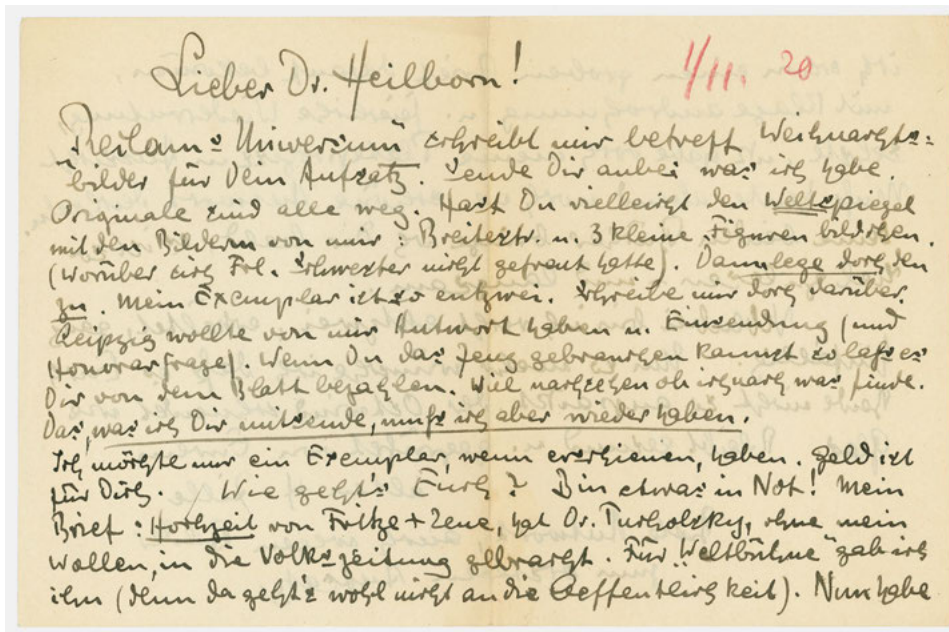 Lieber Dr. Heilborn!
1/11. 20
Reclams Universum schreibt mir betreff Weihnachts=
bilder für Dein Aufsatz. Sende Dir anbei was ich habe.
Originale sind alle weg. Hast Du vielleicht den Weltspiegel
mit den Bildern von mir: Breitestr. u. 3 kleine Figuren bildchen.
(worüber sich Frl. Schwester nicht gefreut hatte). Dann lege doch den
zu. Mein Exemplar ist so entzwei. Schreibe mir doch darüber.
Leipzig wollte von mir Antwort haben u. Einsendung (und
Honorarfrage). Wenn Du das Zeug gebrauchen kannst so lass es
Dir von dem Blatt bezahlen. Will nachsehen ob ich noch was finde.
Das, was ich Dir mitsende, muß ich aber wieder haben.
Ich möchte nur ein Exemplar, wenn erschienen, haben. Geld ist
für Dich. Wie geht's Euch? Bin etwas in Not! Mein
Brief: Hochzeit von Fritze + Lene, hat Dr. Tucholzky, ohne mein
Wollen, in die Volkszeitung gebracht. Für "Weltbühne" gab ich
ihn (denn da geht's wohl nicht an die Oeffentlichkeit). Nun habe